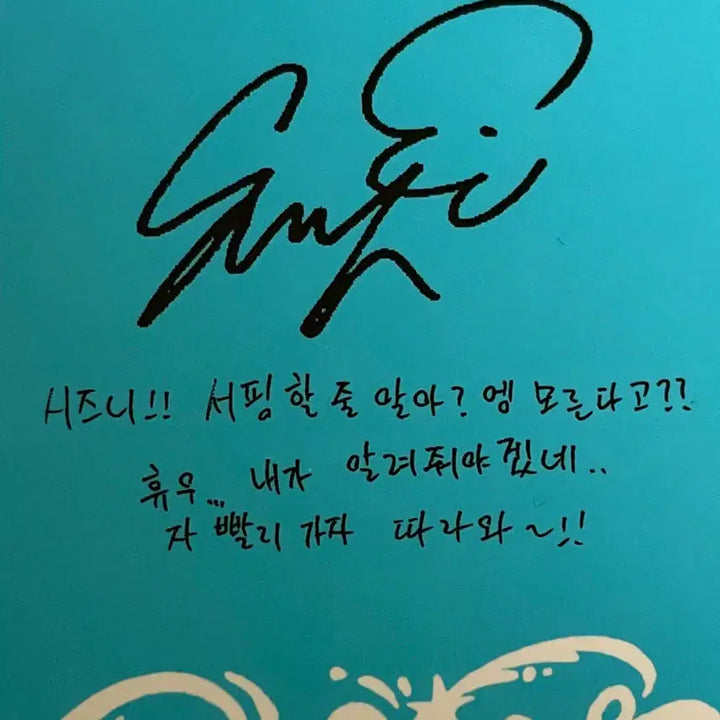 시즈니!! 서핑할 줄 알아? 엥 모른다고??
휴우... 내가 알려줘야겠네..
자 빨리 가자 따라와~!!